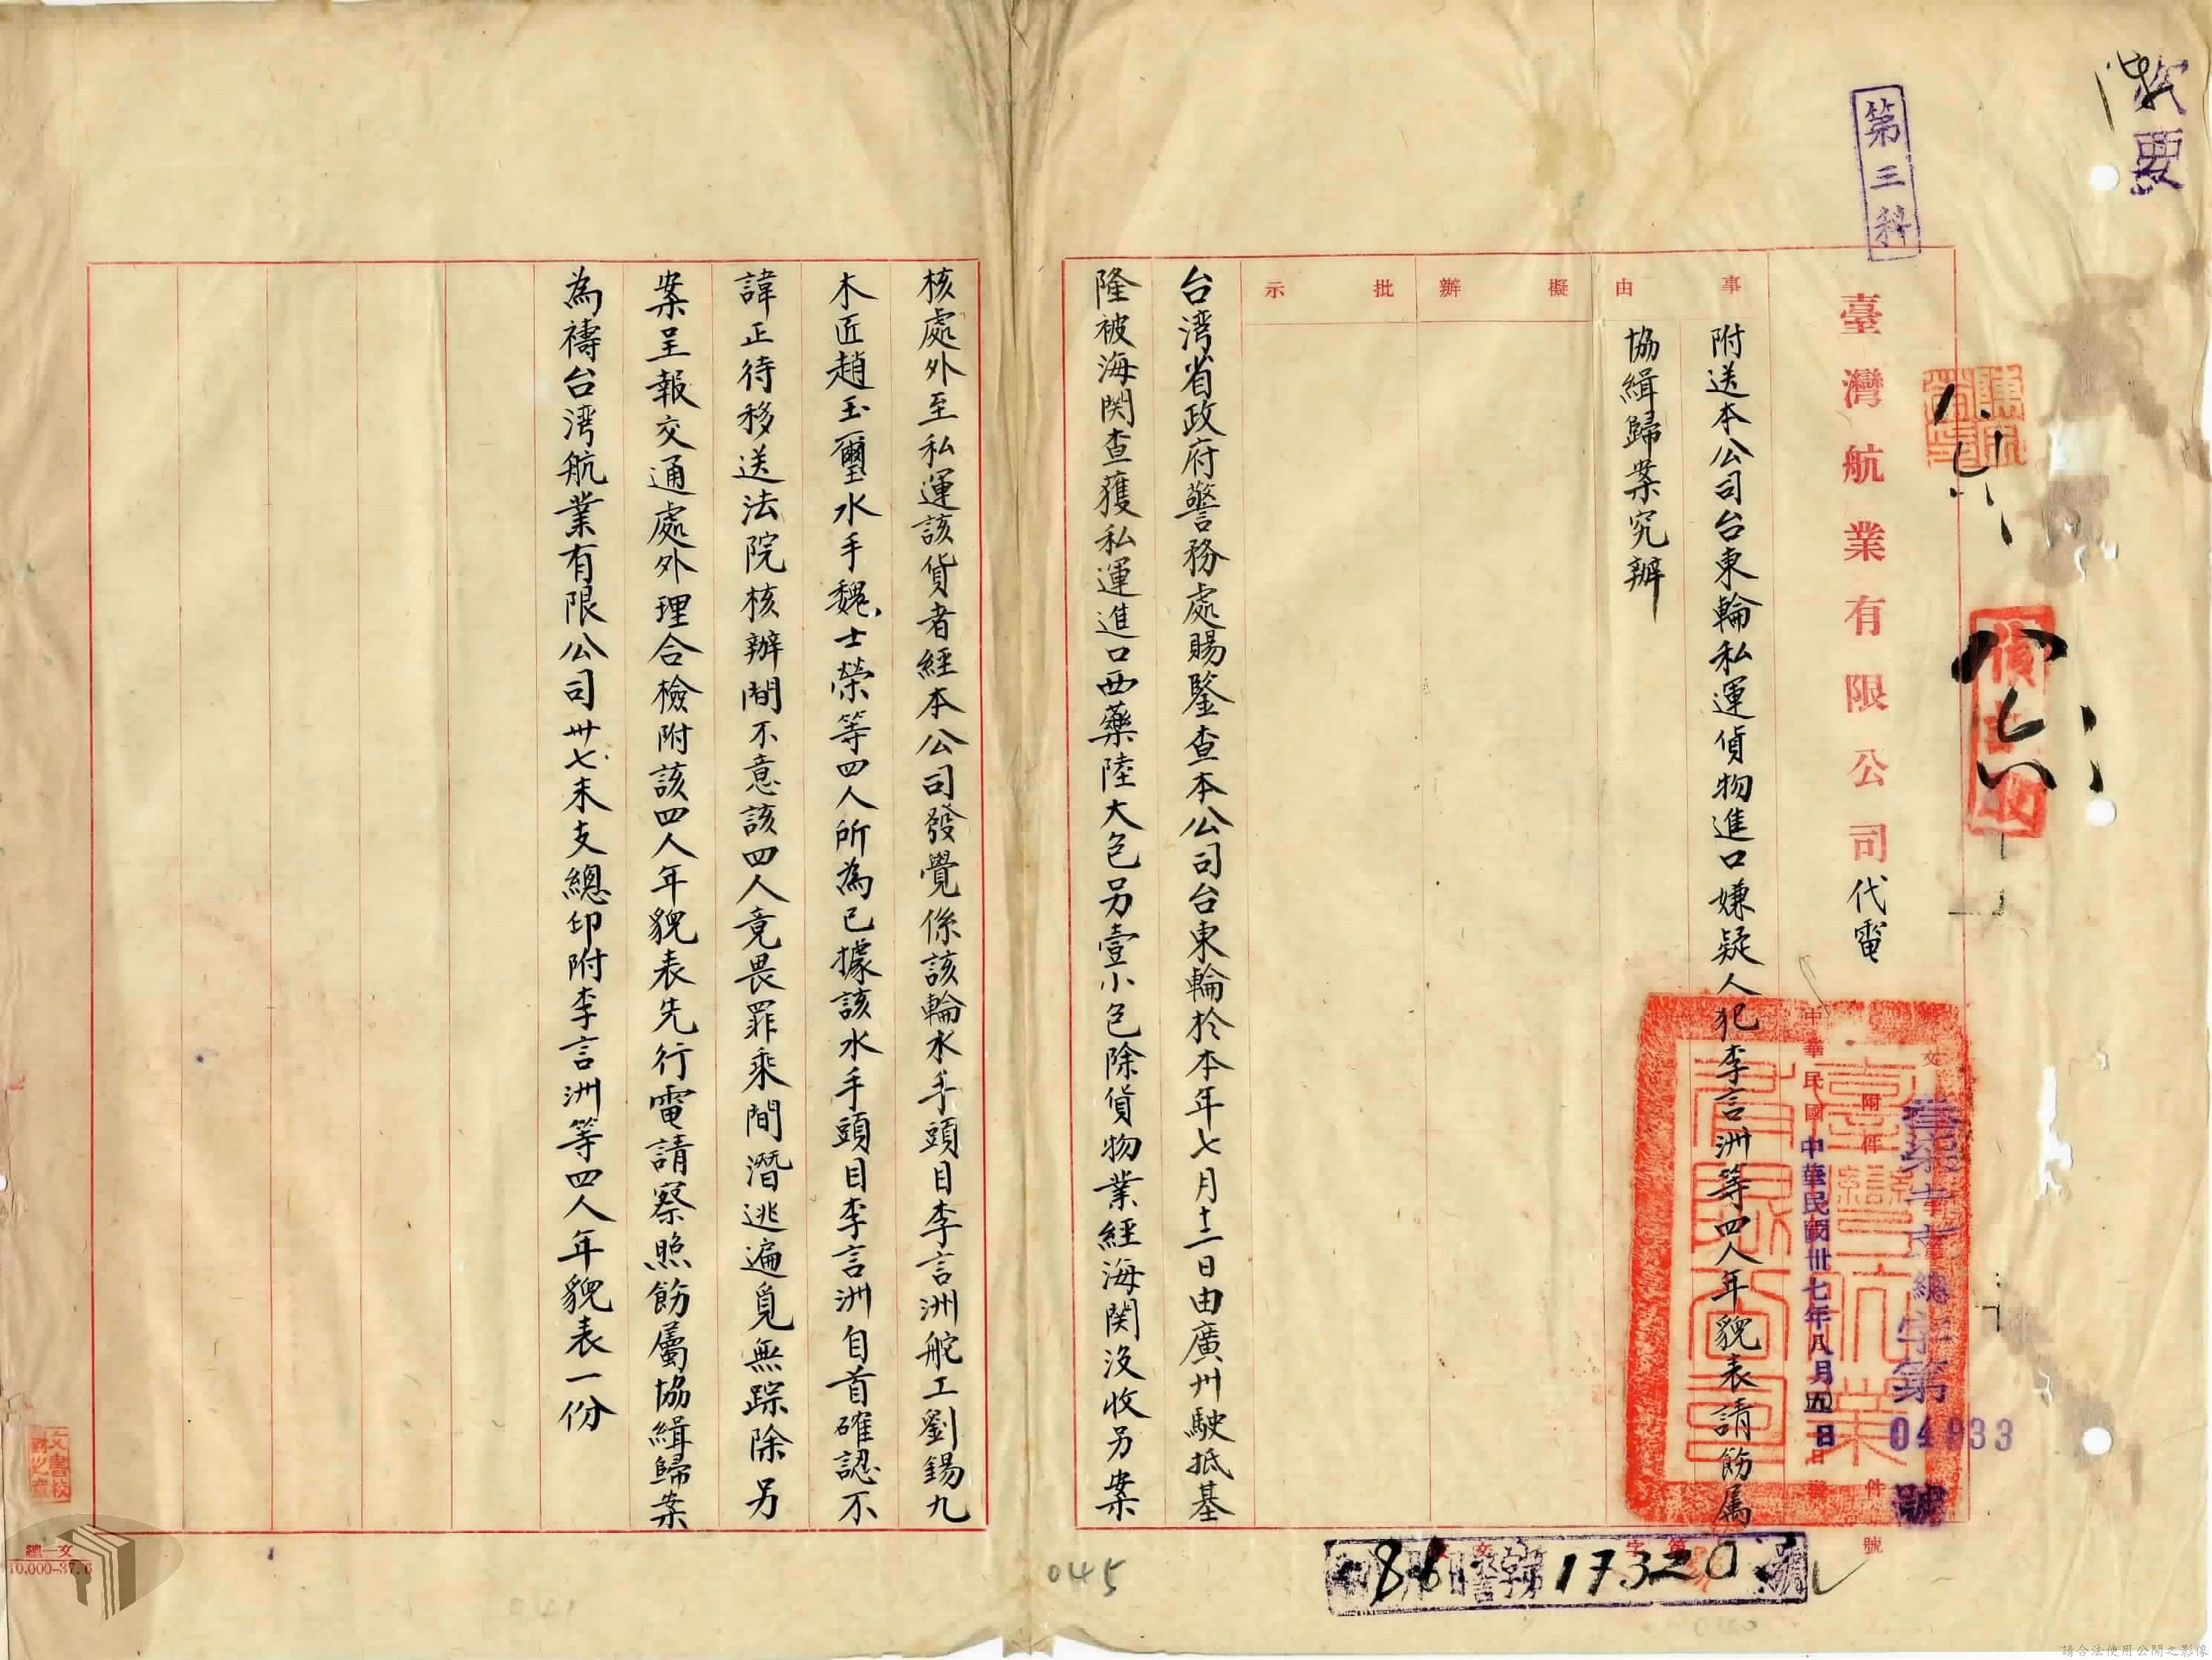 次要
第三科
臺灣航業有限公司代電
文
附件
號
件
中華民國卅七年八月五日
總字第04933號
事由
附送本公司台東輪私運貨物進口嫌疑人犯李言洲等四人年貌表請飭属
協緝歸案究辦
擬辦
批示
台湾省政府警務處賜鑒查本公司台東輪於本年七月十二日由廣州駛抵基
隆被海関查獲私運進口西藥陸大包另壹小包除貨物業經海関没收另案
核處外至私運該貨者經本公司發覺係該輪水手頭目李言洲舵工劉錫九
木匠趙玉璽水手魏士榮等四人所為已據該水手頭目李言洲自首確認不
諱正待移送法院核辦間不意該四人竟畏罪乘間潛逃遍覓無踪除另
案呈報交通處外理合檢附該四人年貌表先行電請察照飭屬協緝歸案
為禱台湾航業有限公司卅七未支總印附李言洲等四人年貌表一份
文書校對之章
總一文
10.000-37.6
045
17320
請合法使用公開之影像